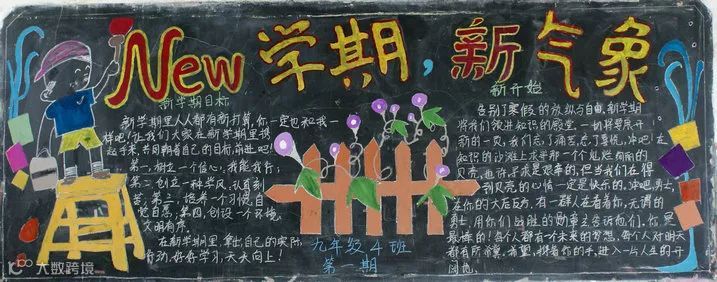 New 学期，新气象
新学期目标
新学期里人人都有新打算，你一定也和我一
样吧！让我们大家在新学期里携
起手来，共同朝着自己的目标，前进吧！
第一，树立一个信心，我能我行；
第二，创立一种学风，认真刻
苦；第三，培养一个习惯，自
觉自悉；第四，创设一个环境，
文明有序。
在新学期里，拿出自己的实际
行动，好好学习，天天向上！
九年级4班
第一期
新开始
告别了寒假的放纵与自由，新学期
将我们领进知识的殿堂，一切将要展开
新的一页，我们忘了痛苦，忘了忧伤，冲吧！在
知识的沙滩上求寻那一个个灿烂绚丽的
贝壳，也许寻求是艰辛的，但当我们在得
到贝壳的心情一定是快乐的，冲吧，勇士，
在你的大后反方，有一群人在看着你，无谓的
勇士，用你们战胜的勋章去告诉他们，你
最棒的！每个人都有一个未来的梦想，每个人对明天
都有所希冀，希望，拥着你的手，进入一片人生的开
阔地。
大数跨境